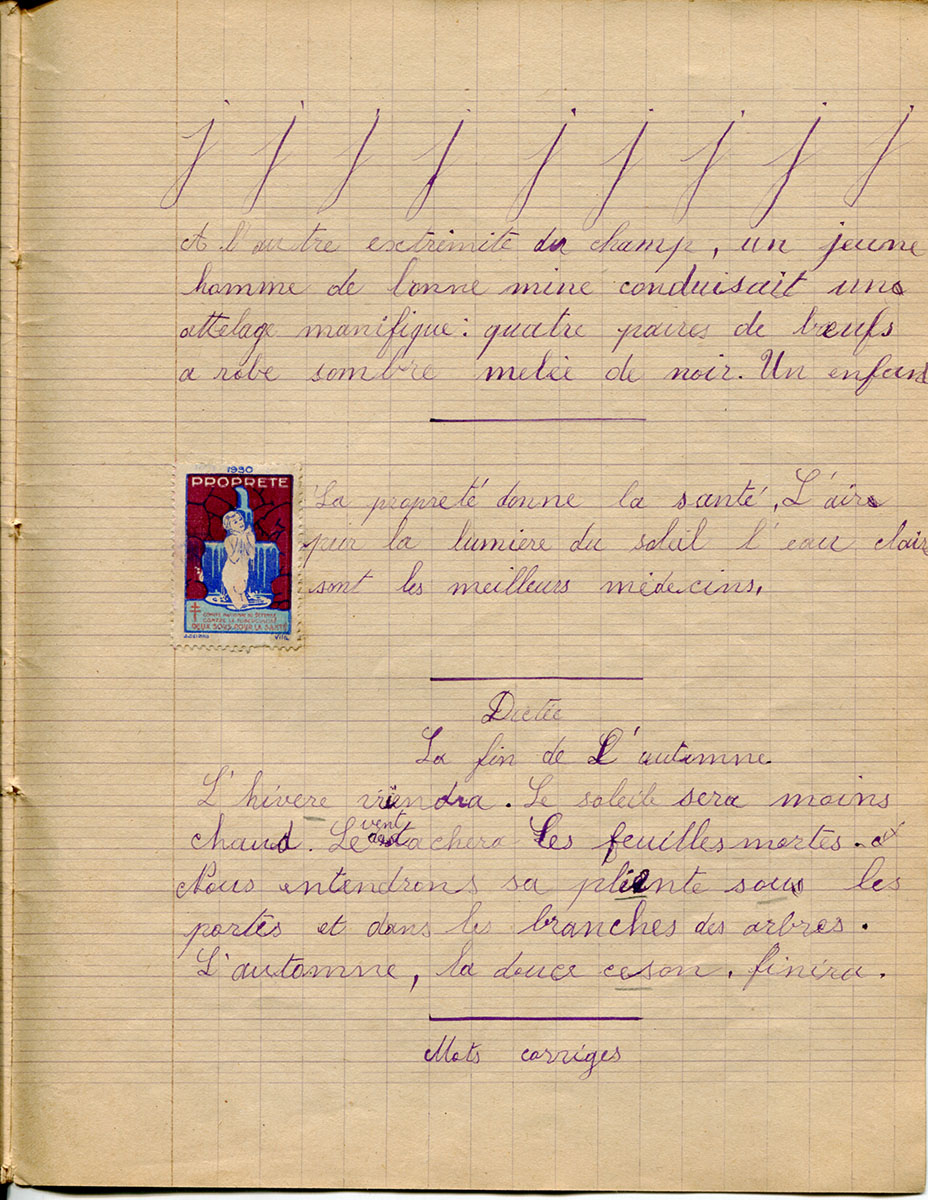 j j j j j j j j j
A l'autre extrémité du champ, un jeune
homme de bonne mine conduisait une
attelage manifique : quatre paires de bœufs
a robe sombre melée de noir. Un enfant
1930
PROPRETE
La propreté donne la santé, L'aire
pur la lumière du soleil l'eau claire
sont les meilleurs médecins.
COMITE NATIONAL DE DEFENSE
CONTRE LA TUBERCULOSE
DEUX SOUS POUR LA SANTE
Dictée
La fin de L'automne
L'hivere viendra. Le soleile sera moins
chaud. Le vent arachera les feuilles mortes. et
Nous entendrons sa plainte sous les
portes et dans les branches des arbres.
L'automne, la douce ceson. finira.
Mots corriges